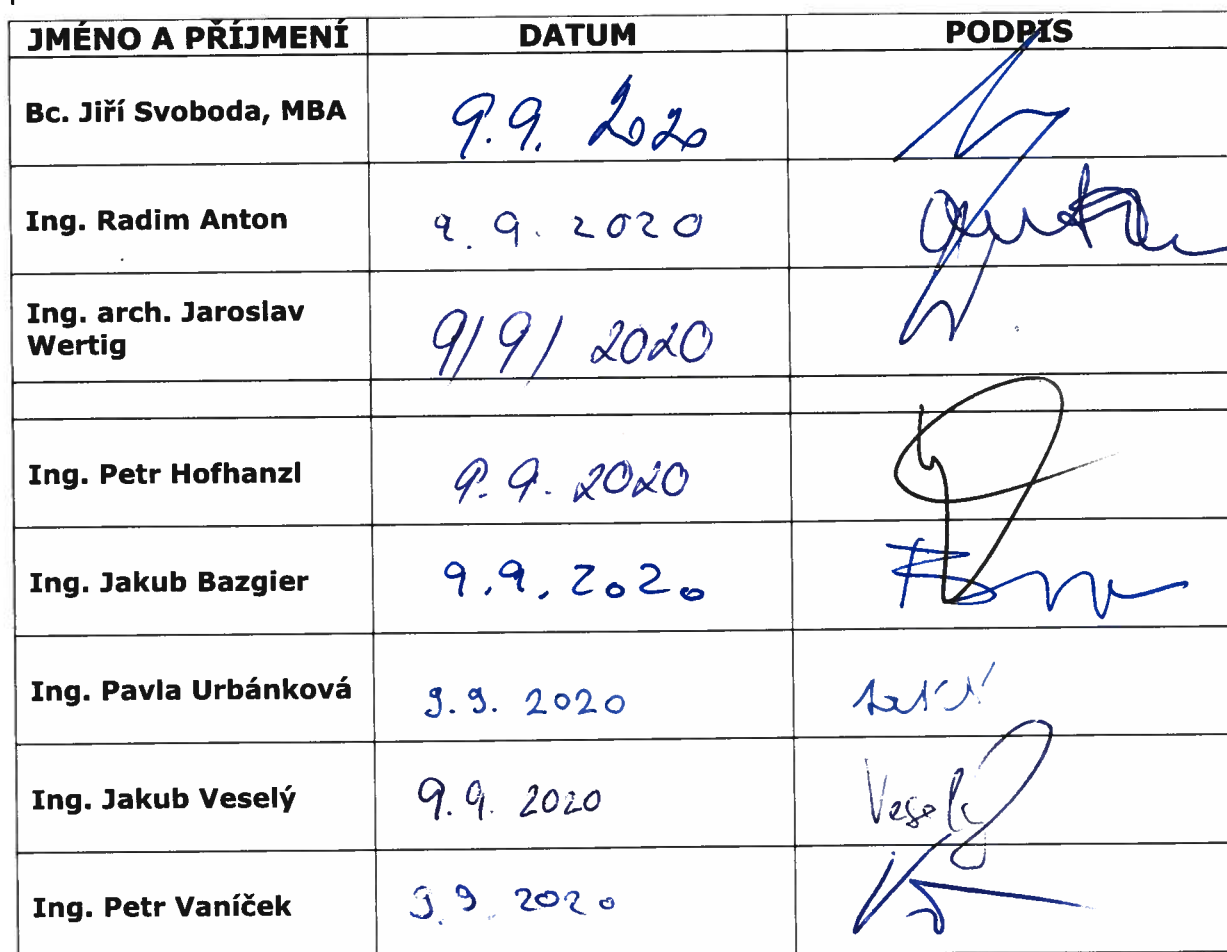 JMÉNO A PŘÍJMENÍ DATUM PODPIS
Bc. Jiří Svoboda, MBA 9.9. 2020
Ing. Radim Anton 9. 9. 2020
Ing. arch. Jaroslav
Wertig 9/9/ 2020
Ing. Petr Hofhanzl 9. 9. 2020
Ing. Jakub Bazgier 9.9. 2020
Ing. Pavla Urbánková 9.9. 2020
Ing. Jakub Veselý 9.9. 2020 Veselý
Ing. Petr Vaníček 9 9 2020